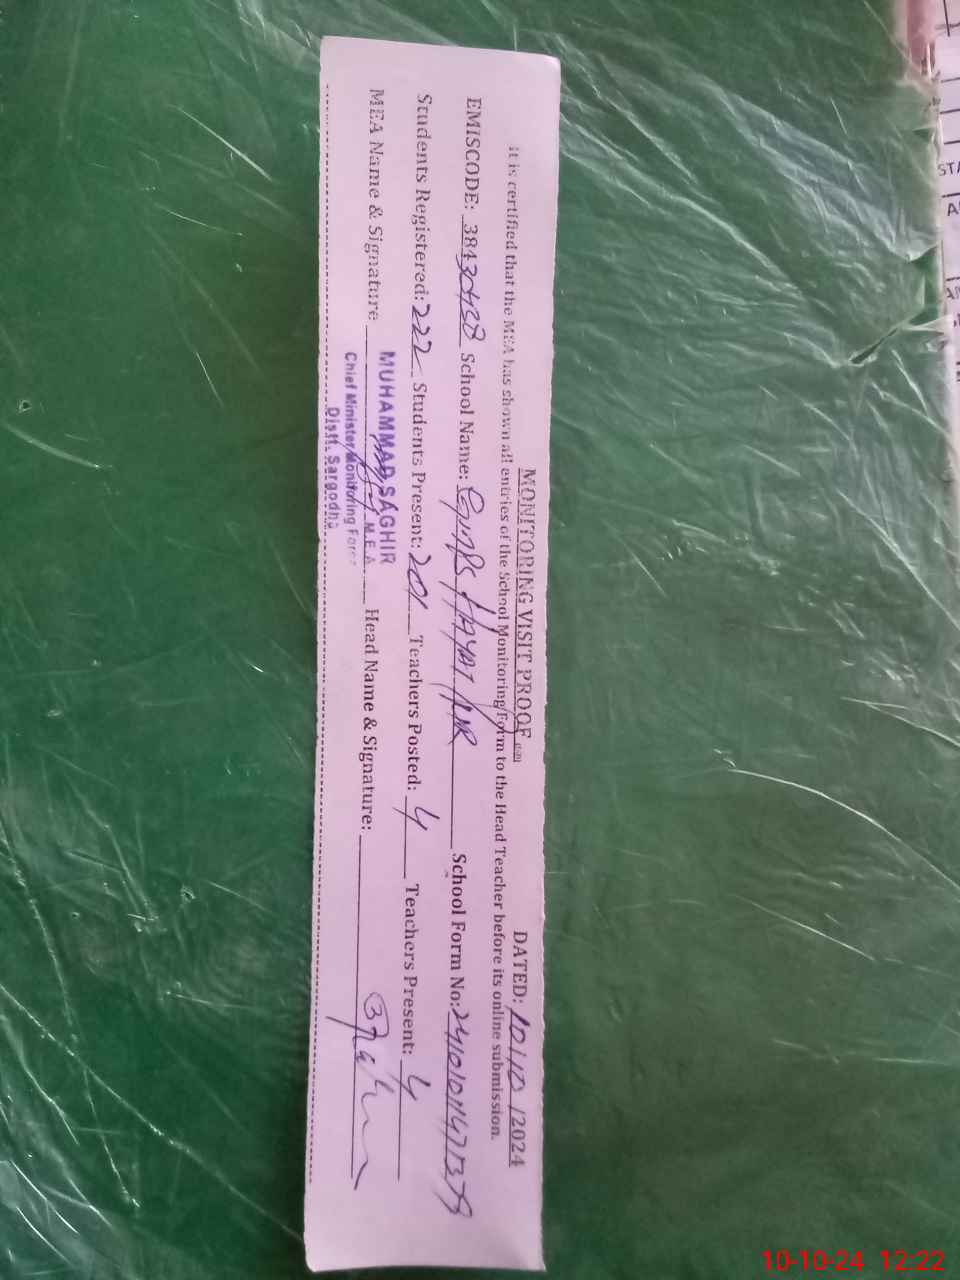 MONITORING VISIT PROOF
DATED: 10/10/2024
It is certified that the MEA has shown all entries of the School Monitoring Form to the Head Teacher before its online submission.
EMISCODE: School Name: HAYAT School Form No:
Students Registered: 222 Students Present: 201 Teachers Posted: 4 Teachers Present: 4
MEA Name & Signature Head Name & Signature:
MUHAMMAD SAGHIR
M.E.A
Chief Minister Monitoring Force
Distt. Sargodha
STA
10-10-24 12:22